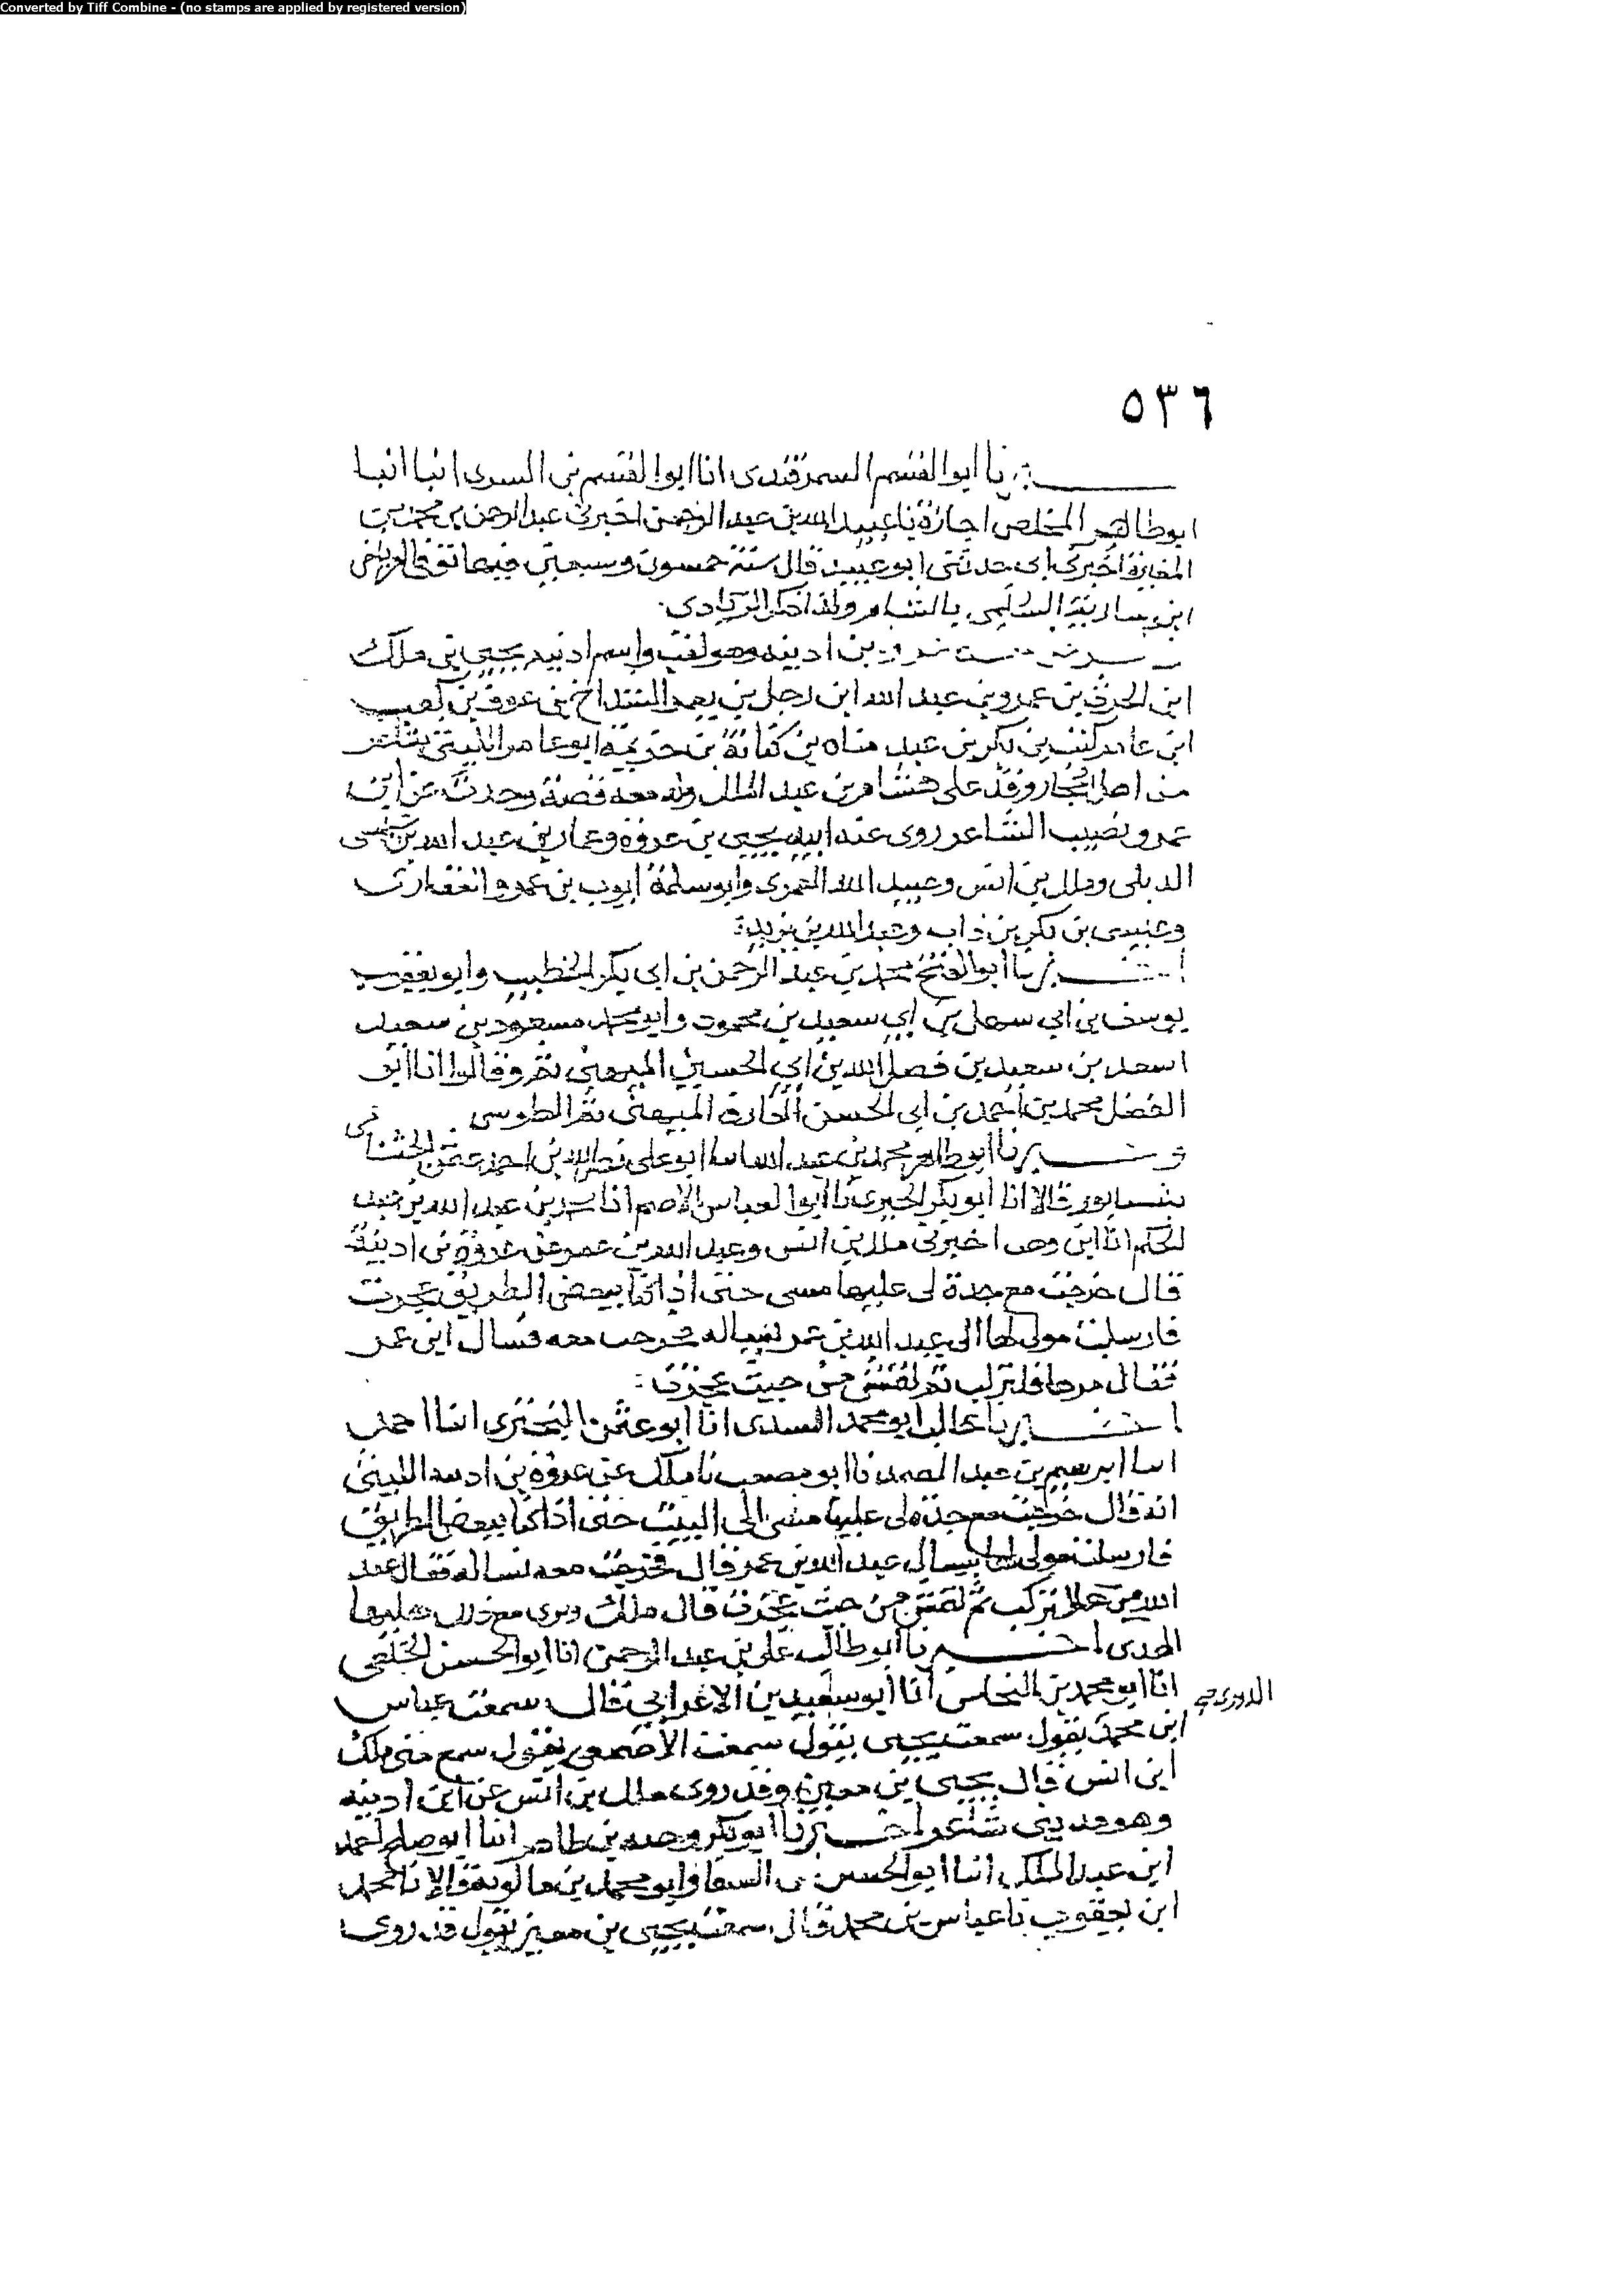 Converted by Tiff Combine - (no stamps are applied by registered version)
٥٣٦
نا ابو القسم السمرقندى انا ابو القسم بن السرى انبا انبا
ابو طاهر المخلص اجازة نا عبيد الله بن عبد الرحمن اخبرنى عبد الرحمن بن محمد بن
المغيرة اخبرنى ابى حدثنى ابو عبيد قال سنة خمس وسبعين فيها توفى العرباض
ابن سارية السلمى بالشام وكذا ذكر الزيادى
بن ادينه وهو لقب واسم ادنيه يحيى بن ملك
ابن الحرث بن عمرو بن عبد الله ابن رجل بن يعمر الشداخ بن عوف بن كعب
ابن عامر بن بكر بن عبد مناه بن كنانة بن خزيمة ابو عامر الليثى شاعر
من اهل الحجاز وفد على هشام بن عبد الملك وله معه قصة وحدث عن ابن
عمر ونصيب الشاعر روى عنه ابنه يحيى بن عروة وعمار بن عبد الله بن عبسى
الديلى وملك بن انس وعبيد الله العمرى وابو سلمة ايوب بن عمرو الغفارى
وعنبسى بن بكر بن ذاب وعبد الله بن يزيد
نا ابو الفتح محمد بن عبد الرحمن بن ابى بكر الخطيب وابو يعقوب
يوسف بن ابى سهل بن ابى سعيد بن محمود وابو محمد مسعود بن سعيد
اسعد بن سعيد بن فضل الله بن ابى الحسين الميهنى بمرو قالوا انا ابو
الفضل محمد بن احمد بن ابى الحسن العارف الميهنى ثم الطوسى
نا ابو طاهر محمد بن عبد الله ابو على نصر الله بن احمد عثمن الخشنامى
بنسابور قالا انا ابو بكر الحيرى نا ابو العباس الاصم انا بن عبد الله بن عبد
الحكم انا ابن وهب اخبرنى ملك بن انس وعبد الله بن عمر عن عروة بن ادينة
قال خرجت مع جدة لى عليها مسى حتى اذا كنا ببعض الطريق عجزت
فارسلت مولى لها الى عبد الله بن عمر يساله خرجت معه فسال ابن عمر
فقال مرها فلتركب ثم لتمش من حيث عجزت
نا خالى ابو محمد السدى انا ابو عثمن البحترى انا احمد
انا ابرهيم بن عبد الصمد نا ابو مصعب نا ملك عن عروة بن ادينه الليثى
انه قال خرجت مع جدة لى عليها مشى الى البيت حتى اذا كنا ببعض الطريق
فارسلت مولى لها يسال عبد الله بن عمر قال فخرجت معه نساله فقال عبد
الله تركب ثم لتمش من حيث عجزت قال ملك ونرى مع ذلك عليها
الهدى اخبرنا ابو طالب على بن عبد الرحمن انا ابو الحسن الخلعى
انا ابو محمد بن النحاس انا ابو سعيد بن الاعرابي قال سمعت عباس
الدورى
ابن محمد يقول سمعت يحيى يقول سمعت الاصمعى يقول سمع منى ملك
ابن انس قال يحيى بن معين وقد روى ملك بن انس عن ابن ادينه
وهو مدينى شاعر اخبرنا ابو بكر وجيه بن طاهر انا ابو صلح احمد
ابن عبد الملك انا ابو الحسن بن السقا وابو محمد بن بالويه قالا نا محمد
ابن يعقوب نا عباس بن محمد قال سمعت يحيى بن معين يقول قد روى